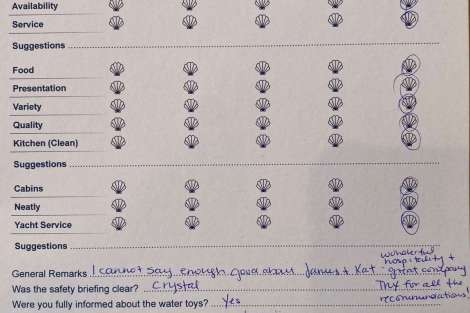 Availability
Service
Suggestions
Food
Presentation
Variety
Quality
Kitchen (Clean)
Suggestions
Cabins
Neatly
Yacht Service
Suggestions
wonderful
hospitality +
General Remarks I cannot say enough good about Janus + Kat - great company
Was the safety briefing clear? Crystal Thx for all the
Were you fully informed about the water toys? Yes recommendations!